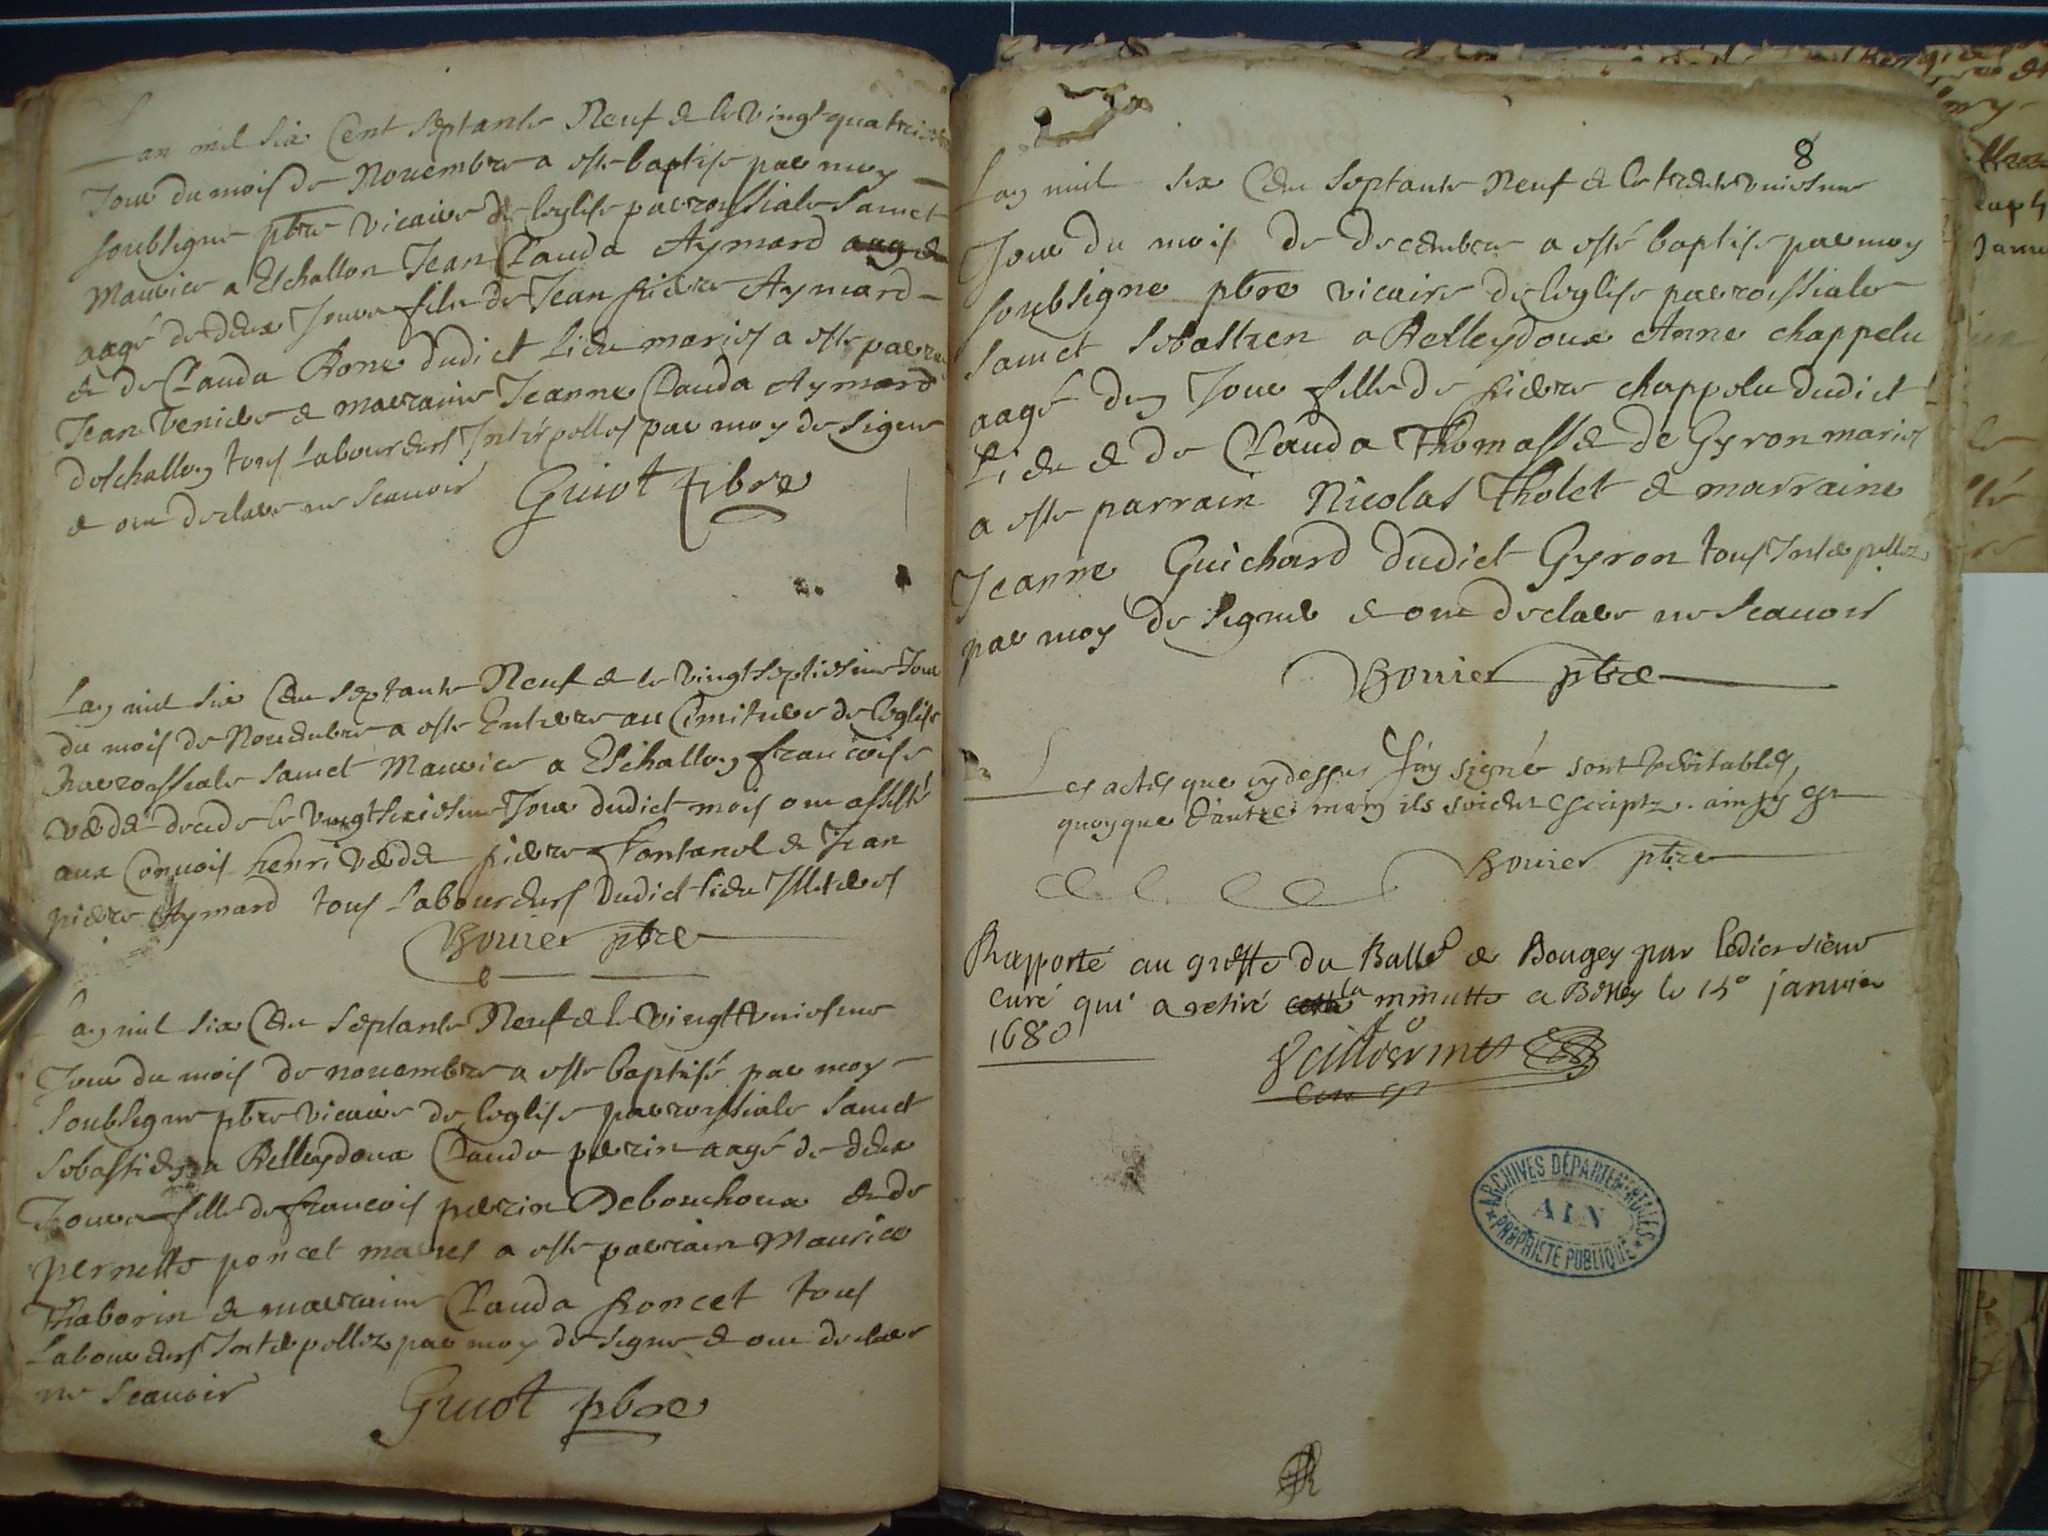 Lan mil six Cent Septante Neuf & le Vingt quatries
Jour du mois de Nouembre a este baptise par moy
soubsigne pbre Vicaire de leglise parrossiale Sainct
Maurice a Eschallon Jean Clauda Aymard aage de
aagé de deux Jours fils de Jean pierre Aymard
& de Clauda Rone dudict Lieu mariés a este parrain
Jean Veniere & marraine Jeanne Clauda Aymard
deschallon tous Laboureurs Interpellés par moy de signer
& ont declare ne scauoir Guiot pbre
Lan mil six Cen septante Neuf & le Vingt septiesme Jour
du mois de Nouembre a este Enterre au Cimitiere de leglise
Parrossiale sainct Maurice a Eschallon francoise
decede le Vingt sixiesme Jour dudict mois ont assisté
aux Conuois henri pierre fontanel & Jean
pierre Aymard tous Laboureurs Dudict lieu Illiteres
Bouier pbre
Lan mil six Cen Septante Neuf & le Vingt Vniesme
Jour du mois de nouembre a este baptisé par moy
Soubsigne pbre Vicaire de leglise parrossiale Sainct
Sebastien a Belleydoux Claude perrin aagé de deux
Jours fille de francois perrin Debouchoux & de
pernette poncet mariés a este parrain Maurice
Thaborin & marraine Clauda Poncet tous
Laboureurs Interpellez par moy de signer & ont declare
ne Scauoir Guiot pbre
8
Lan mil six Cen Septante Neuf & le trente Vniesme
Jour du mois de decembre a esté baptise par moy
soubsigne pbre vicaire de leglise parroissiale
sainct Sebastien a Belleydoux Anne chappelu
aagé dun Jour fille de pierre chappelu dudict
Lieu & de Clauda Thomasse de Gyron mariés
a este parrain Nicolas Tholet & marraine
Jeanne Guichard dudict Gyron tous Interpellez
par moy de signer & ont declare ne Scauoir
Bouier pbre
Les actes que cy dessus J'ay signé sont veritables,
quoyque d'autre main ils soient escripts. ainsy est
Bouier pbre
Rapporté au greffe du Balle de Bougey par ledict sieur
curé qui a retiré cette la minutte a Belley le 15e janvier
1680
ARCHIVES DÉPARTEMENTALES
AIN
PROPRIETE PUBLIQUE